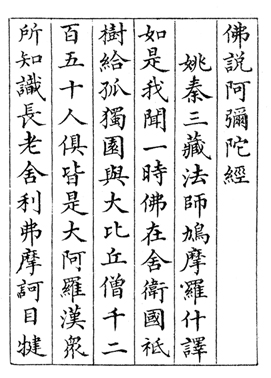 佛說阿彌陀經
姚秦三藏法師鳩摩羅什譯
如是我聞一時佛在舍衛國祗
樹給孤獨園與大比丘僧千二
百五十人俱皆是大阿羅漢眾
所知識長老舍利弗摩訶目犍